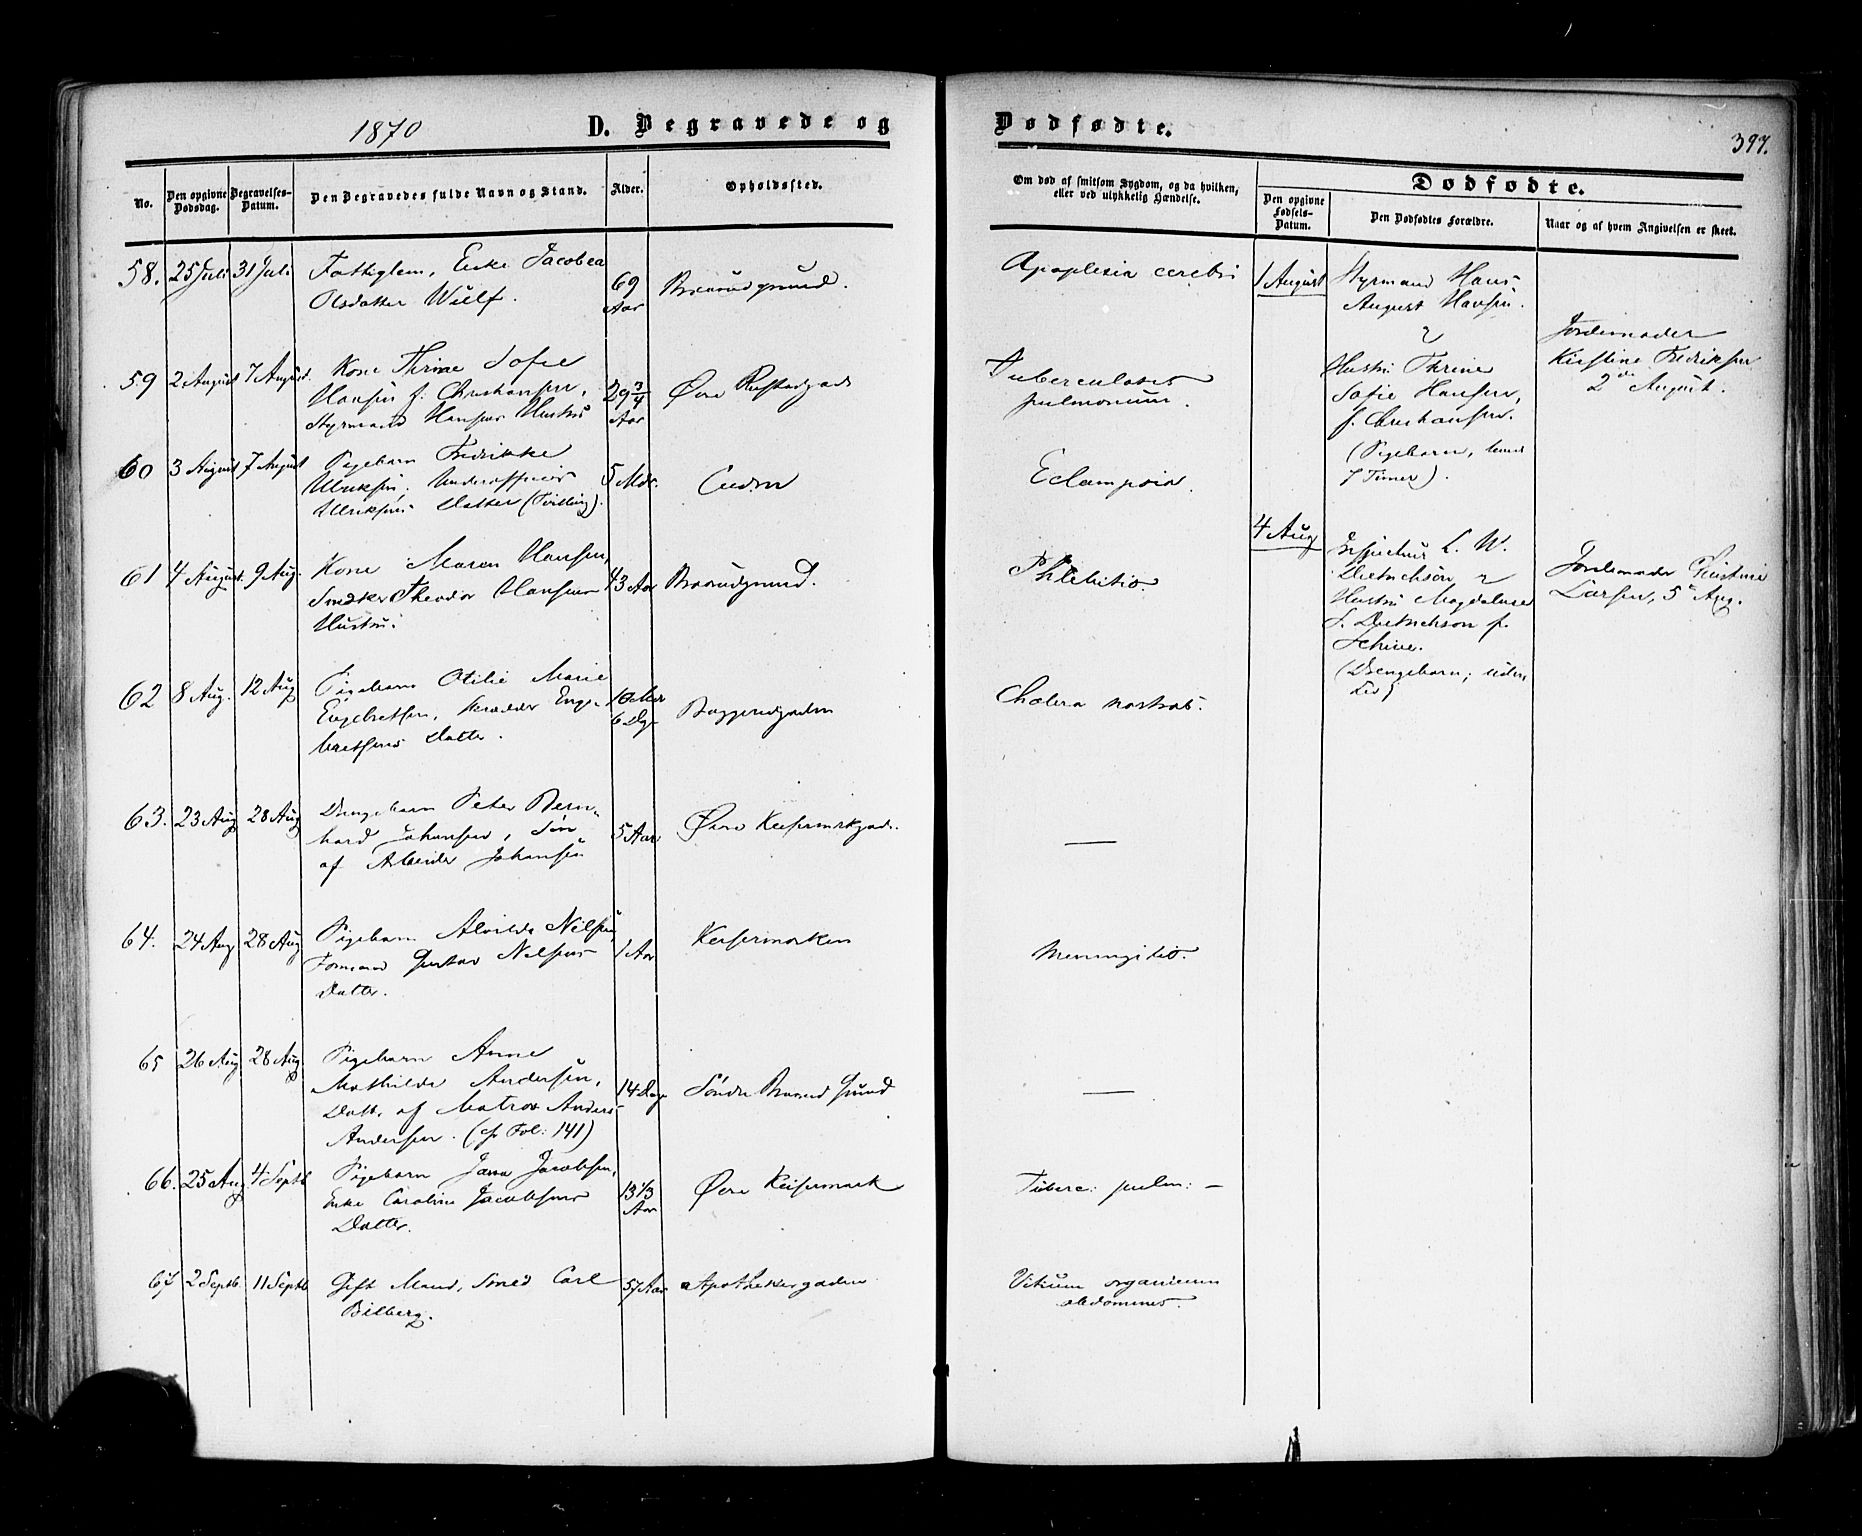 1870
D. Begravede og Dødfødte.
397.
No.
Den opgivne Dødsdag.
Begravelses-Datum.
Den Begravedes fulde Navn og Stand.
Alder.
Opholdssted.
Om død af smitsom Sygdom, og da hvilken,
eller ved ulykkelig Hændelse.
Dødfødte.
Den opgivne Fødsels-Datum.
Den Dødfødtes Forældre.
Naar og af hvem Angivelsen er skeet.
58. 25 Juli 31 Juli
Fattiglem, Enke Jacobea
Olsdatter Wulf.
69
Aar
Apoplexia cerebri
1 August
Styrmand Hans
August Hansen.
&
Hustru Thrine
Sofie Hansen,
f. Christiansen.
(Pigebarn, levede
7 Timer).
Jordemoder
Kirstine Fredriksen
2den August.
59 2 August 7 August.
Kone Thrine Sofie
Hansen f. Christiansen,
Styrmand Hansens Hustru
29 3/4
Aar
Øvre
Tuberculosis
pulmonum.
60 3 August 7 August
Pigebarn Fredrikke
Ulriksen, Underofficeer
Ulriksens Datter (Tvilling).
5 Mdr.
Eclampsia.
61 4 August. 9 Aug.
Kone Maren Hansen,
Snedker Theodor Hansens
Hustru.
43 Aar
Phlebitis.
4 Aug
L. W.
Dietrichson &
Hustru Magdalene
S. Dietrichson f.
(Drengebarn; uden
Liv)
Jordemoder Kirstine
Larsen, 5te Aug.
62 8 Aug. 12 Aug
Pigebarn Otilie Marie
Engebretsen, Skrædder Enge-
bretsens Datter.
10 Mdr
6 Dge
Cholera nostras.
63. 23 Aug 28 Aug
Drengebarn Peter Bern-
hard Johansen, Søn
af Arbeider Johansen
5 Aar
Øvre Keisermarkgad.
—
64. 24 Aug 28 Aug
Pigebarn Alvilde Nilsen,
Formand Gustav Nilsens
Datter.
1 Aar
Keisermarken
Meningitis.
65 26 Aug 28 Aug.
Pigebarn Anne
Mathilde Andersen,
Dattr. af Matros Anders
Andersen. (cfr Fol: 141)
14 Dag
Søndre Brannd Grund
—
66. 25 Aug 4 Septb
Pigebarn Jacobsen,
Enke Caroline Jacobsens
Datter.
13 1/3
Aar
Øvre Keisermark
Tuberc: pulm: –
67 2 Septb. 11 Septb
Gift Mand, Smed Carl
Bilberg.
57 Aar
Apothekergaden
Vitium organicum
abdominis.